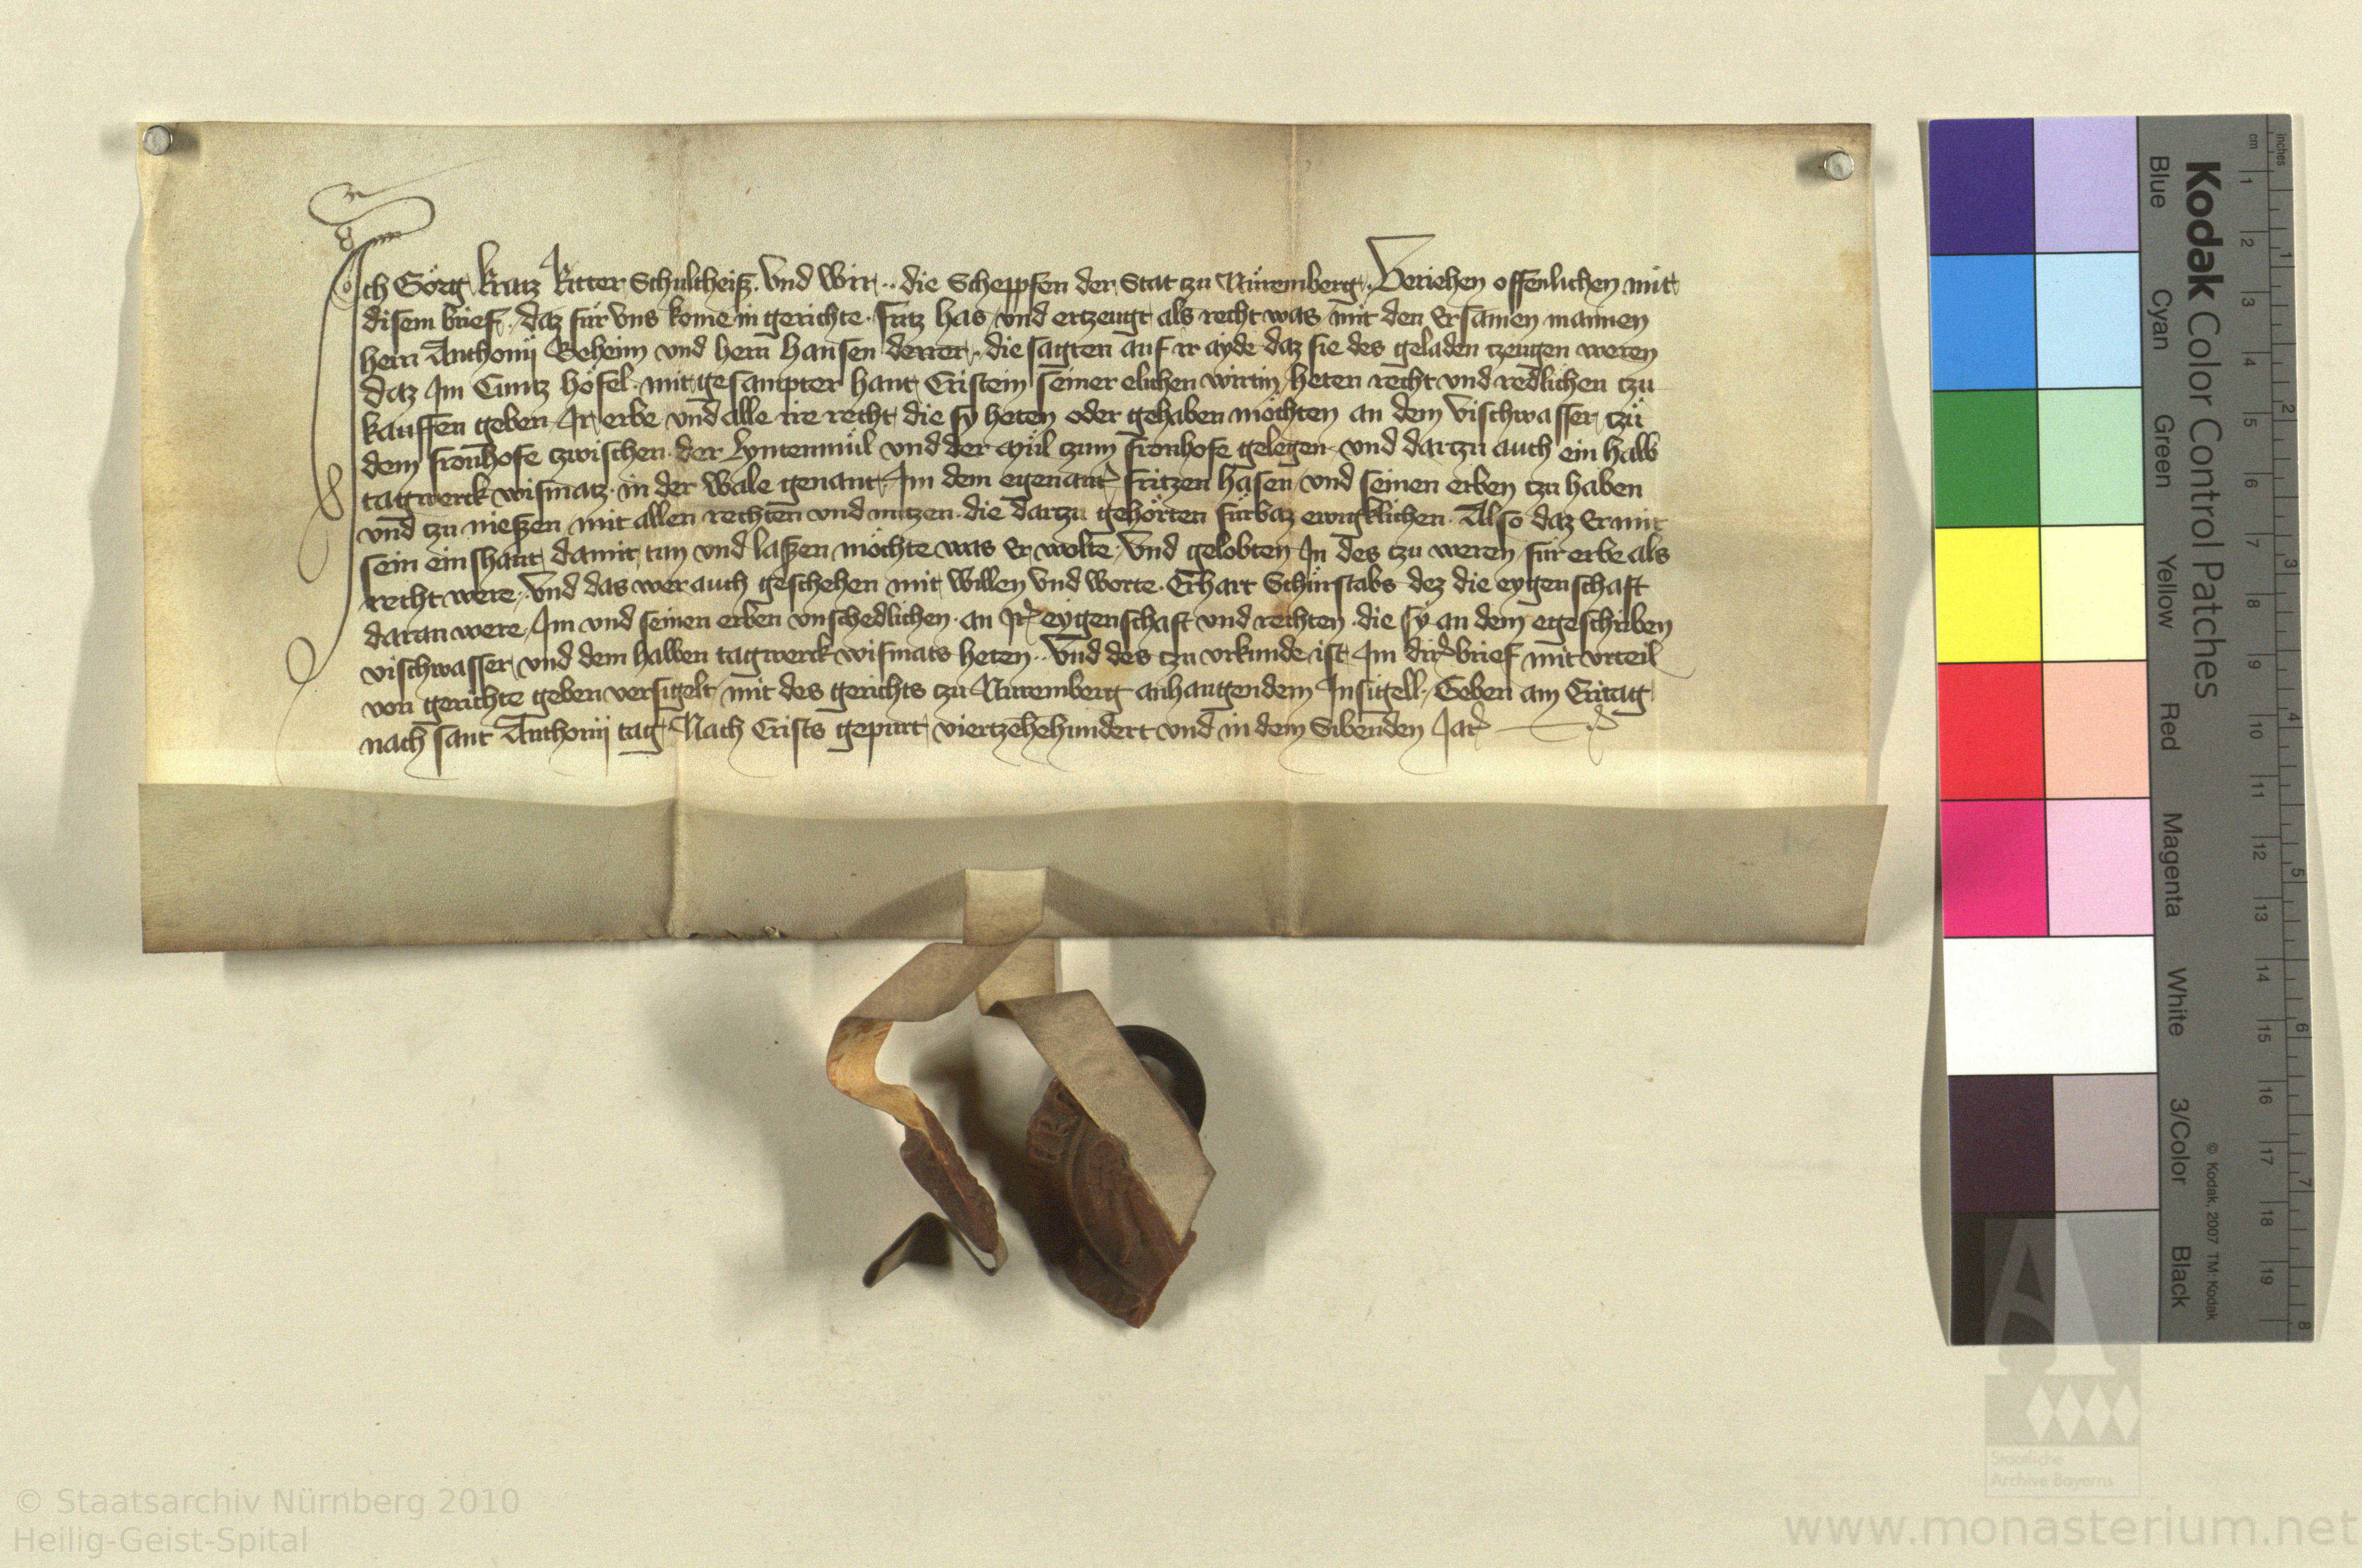 Ich Görg kratz Ritter Schultheiß. Vnd Wir.. die Scheppfen der Stat zu Nüremberg. Veriehen offenlichen mit
disem brief. daz für vns kome in gerichte. Fritz has vnd ertzeugt als recht was mit den Ersamen mannen
hern Anthonij Beheim vnd hern hansen derrer. die sagten auf ir ayde daz sie des geladen tzeugen weren
daz Im Cuntz höfel. mit gesampter hant Cristein seiner elichen wirtin heten recht vnd redlichen tzu
kauffen geben Ir erbe vnd alle ire recht die sy heten oder gehaben möchten an dem vischwasser tzu
dem fronhofe tzwischen der Lyntenmül vnd der mül zum fronhofe gelegen vnd dartzu auch ein halb
tagwerck wismatz. in der Wale genant Im dem egenant fritzen hasen vnd seinen erben tzu haben
vnd tzu nießen mit allen rechten vnd nutzen. die dartzu gehörten fürbaz ewigklichen. Also daz Er mit
sein eins hant damit tun vnd laßen möchte was Er wolte. Vnd gelobten In des tzu weren für erbe als
recht were. Vnd das wer auch geschehen mit willen vnd worte. Erhart Schürstabs dez die eygenschaft
daran were Im vnd seinen erben vnschedlichen. an Ir eygenschaft vnd rechten. die sy an dem egeschriben
vischwasser vnd dem halben tagwerck wismats heten.. Vnd des tzu vrkunde ist Im dir brief mit vrteil
von gerichte geben versigelt mit des gerichts tzu Nuremberg anhangendem Insigell. Geben am Eritag
nach sant Anthonij tag Nach Crists gepurt viertzehehundert vnd in dem Sibenden Jar
Kodak Color Control Patches
Blue Cyan Green Yellow Red Magenta White 3/Color Black
© Kodak, 2007 TM: Kodak
cm 1 2 3 4 5 6 7 8 9 10 11 12 13 14 15 16 17 18 19
inches 1 2 3 4 5 6 7 8
Staatliche
Archive Bayerns
© Staatsarchiv Nürnberg 2010
Heilig-Geist-Spital
www.monasterium.net